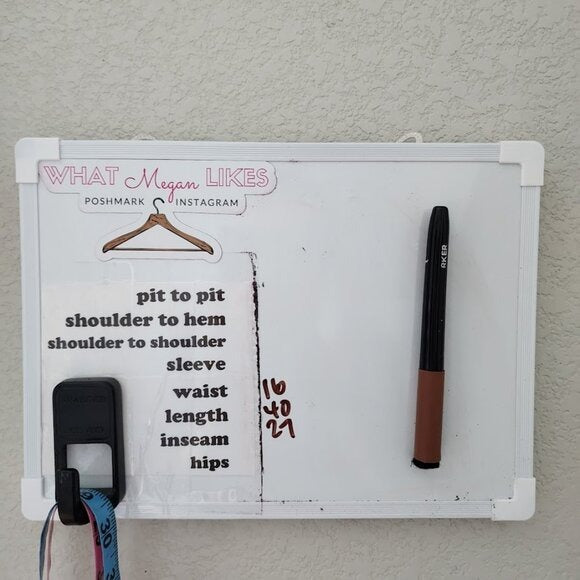 WHAT Megan LIKES
POSHMARK INSTAGRAM
pit to pit
shoulder to hem
shoulder to shoulder
sleeve
waist 16
length 40
inseam 27
hips
RKER
30